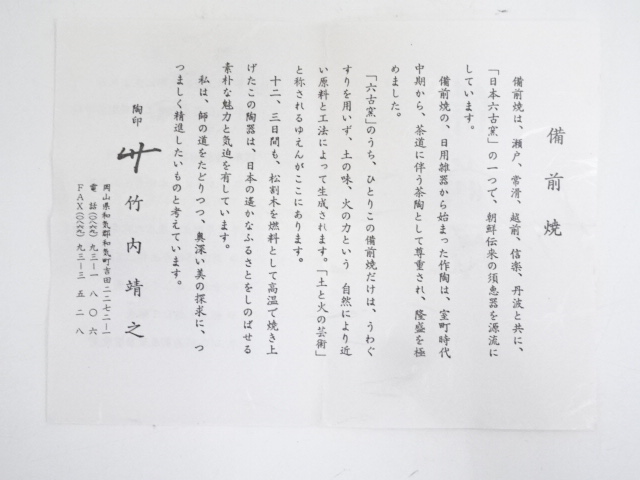 備前焼
備前焼は、瀬戸、常滑、越前、信楽、丹波と共に、
「日本六古窯」の一つで、朝鮮伝来の須恵器を源流に
しています。
備前焼の、日用雑器から始まった作陶は、室町時代
中期から、茶道に伴う茶陶として尊重され、隆盛を極
めました。
「六古窯」のうち、ひとりこの備前焼だけは、うわぐ
すりを用いず、土の味、火の力という 自然により近
い原料と工法によって生成されます。「土と火の芸術」
と称されるゆえんがここにあります。
十二、三日間も、松割木を燃料として高温で焼き上
げたこの陶器は、日本の遥かなふるさとをしのばせる
素朴な魅力と気迫を有しています。
私は、師の道をたどりつつ、奥深い美の探求に、つ
つましく精進したいものと考えています。
陶印 竹内靖之
岡山県和気郡和気町吉田二二七二ー一
電話(〇八六九)九三ー一八〇六
FAX(〇八六九)九三ー三五二八